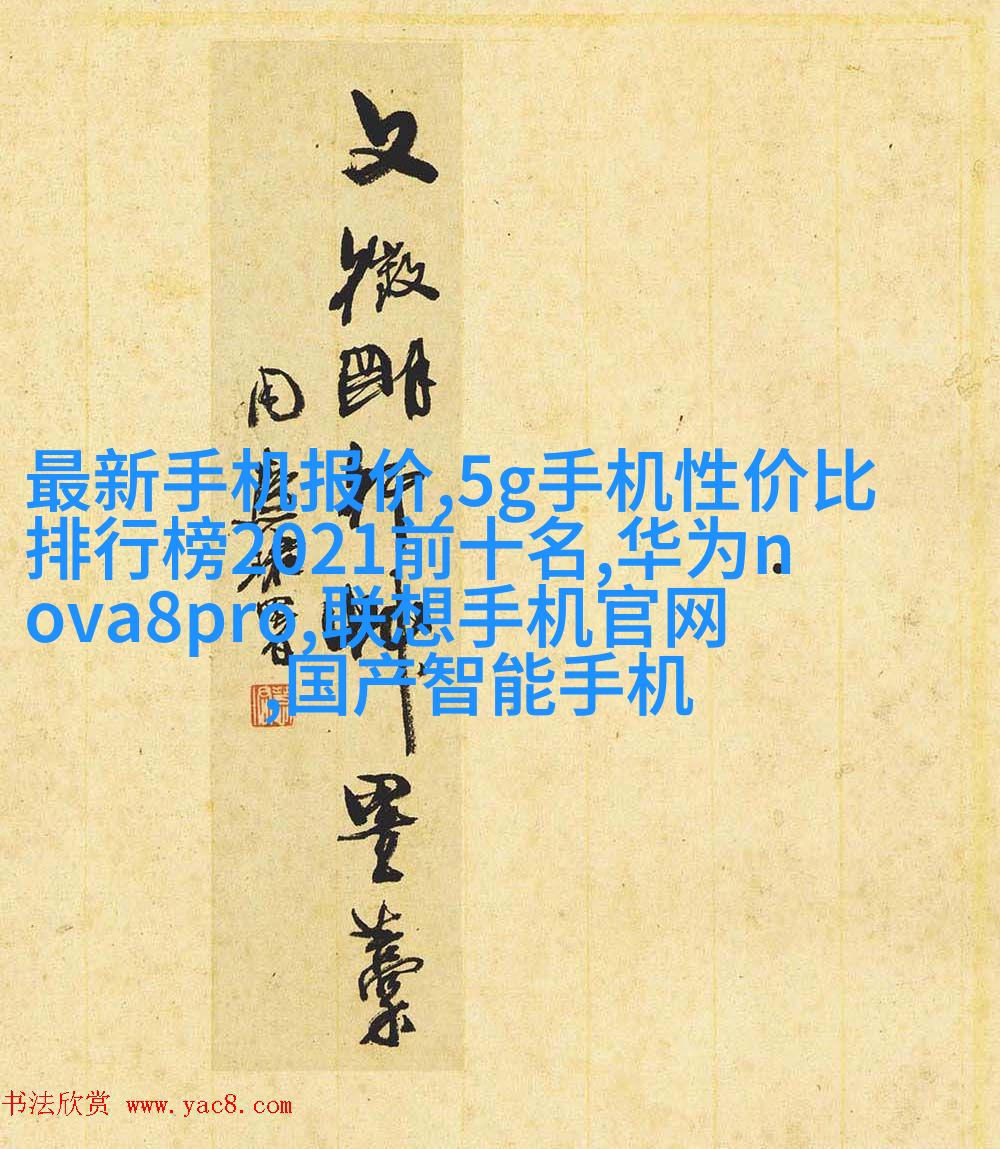 文徵明
墨藁
最新手机报价,5g手机性价比
排行榜2021前十名,华为n
ova8pro,联想手机官网
,国产智能手机
书法欣赏 www.yac8.com